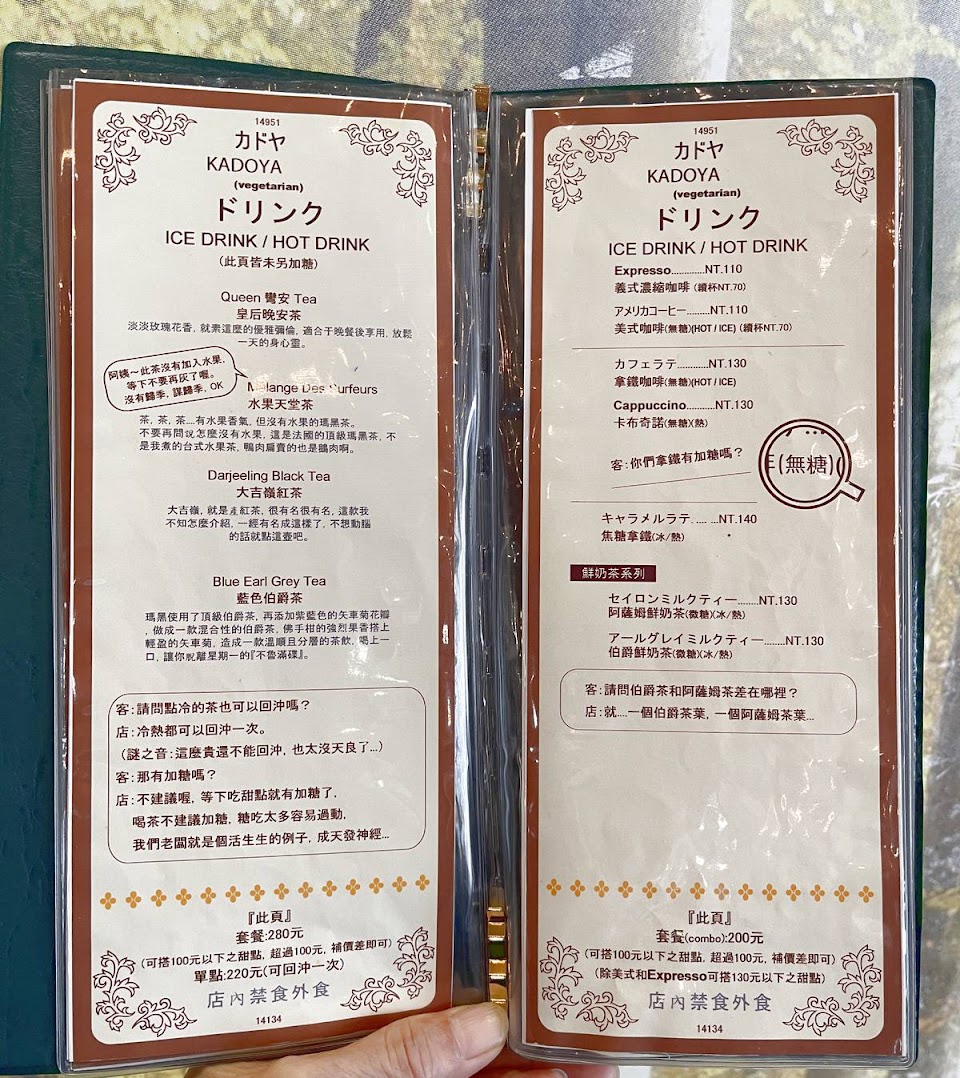 14951
カドヤ
KADOYA
(vegetarian)
ドリンク
ICE DRINK / HOT DRINK
(此頁皆未另加糖)
Queen 彎安 Tea
皇后晚安茶
淡淡玫瑰花香, 就素這麼的優雅彌倫, 適合于晚餐後享用, 放鬆
一天的身心靈。
阿姨～此茶沒有加入水果,
等下不要再灰了喔。
沒有歸季, 謀歸季, OK
Mélange Des Surfeurs
水果天堂茶
茶, 茶, 茶....有水果香氣, 但沒有水果的瑪黑茶。
不要再問說怎麼沒有水果, 這是法國的頂級瑪黑茶, 不
是我煮的台式水果茶, 鴨肉扁賣的也是鵝肉啊。
Darjeeling Black Tea
大吉嶺紅茶
大吉嶺, 就是產紅茶, 很有名很有名, 這款我
不知怎麼介紹, 一經有名成這樣了, 不想動腦
的話就點這壺吧。
Blue Earl Grey Tea
藍色伯爵茶
瑪黑使用了頂級伯爵茶, 再添加紫藍色的矢車菊花瓣
, 做成一款混合性的伯爵茶, 佛手柑的強烈果香搭上
輕盈的矢車菊, 造成一款溫順且分層的茶飲, 喝上一
口, 讓你脫離星期一的『不魯滿碟』。
客:請問點冷的茶也可以回沖嗎？
店:冷熱都可以回沖一次。
(謎之音:這麼貴還不能回沖, 也太沒天良了...)
客:那有加糖嗎？
店:不建議喔, 等下吃甜點就有加糖了,
喝茶不建議加糖, 糖吃太多容易過動,
我們老闆就是個活生生的例子, 成天發神經...
『此頁』
套餐:280元
(可搭100元以下之甜點, 超過100元, 補價差即可)
單點:220元(可回沖一次)
店內禁食外食
14134
14951
カドヤ
KADOYA
(vegetarian)
ドリンク
ICE DRINK / HOT DRINK
Expresso.............NT.110
義式濃縮咖啡 (續杯NT.70)
アメリカコーヒー.........NT.110
美式咖啡(無糖)(HOT / ICE) (續杯NT.70)
カフェラテ............NT.130
拿鐵咖啡(無糖)(HOT / ICE)
Cappuccino...........NT.130
卡布奇諾(無糖)(熱)
客:你們拿鐵有加糖嗎？
(無糖)
キャラメルラテ. .... ...NT.140
焦糖拿鐵(冰/熱)
鮮奶茶系列
セイロンミルクティー........NT.130
阿薩姆鮮奶茶(微糖)(冰/熱)
アールグレイミルクティー........NT.130
伯爵鮮奶茶(微糖)(冰/熱)
客:請問伯爵茶和阿薩姆茶差在哪裡？
店:就....一個伯爵茶葉, 一個阿薩姆茶葉...
『此頁』
套餐(combo):200元
(可搭100元以下之甜點, 超過100元, 補價差即可)
(除美式和Expresso可搭130元以下之甜點)
店內禁食外食
14134